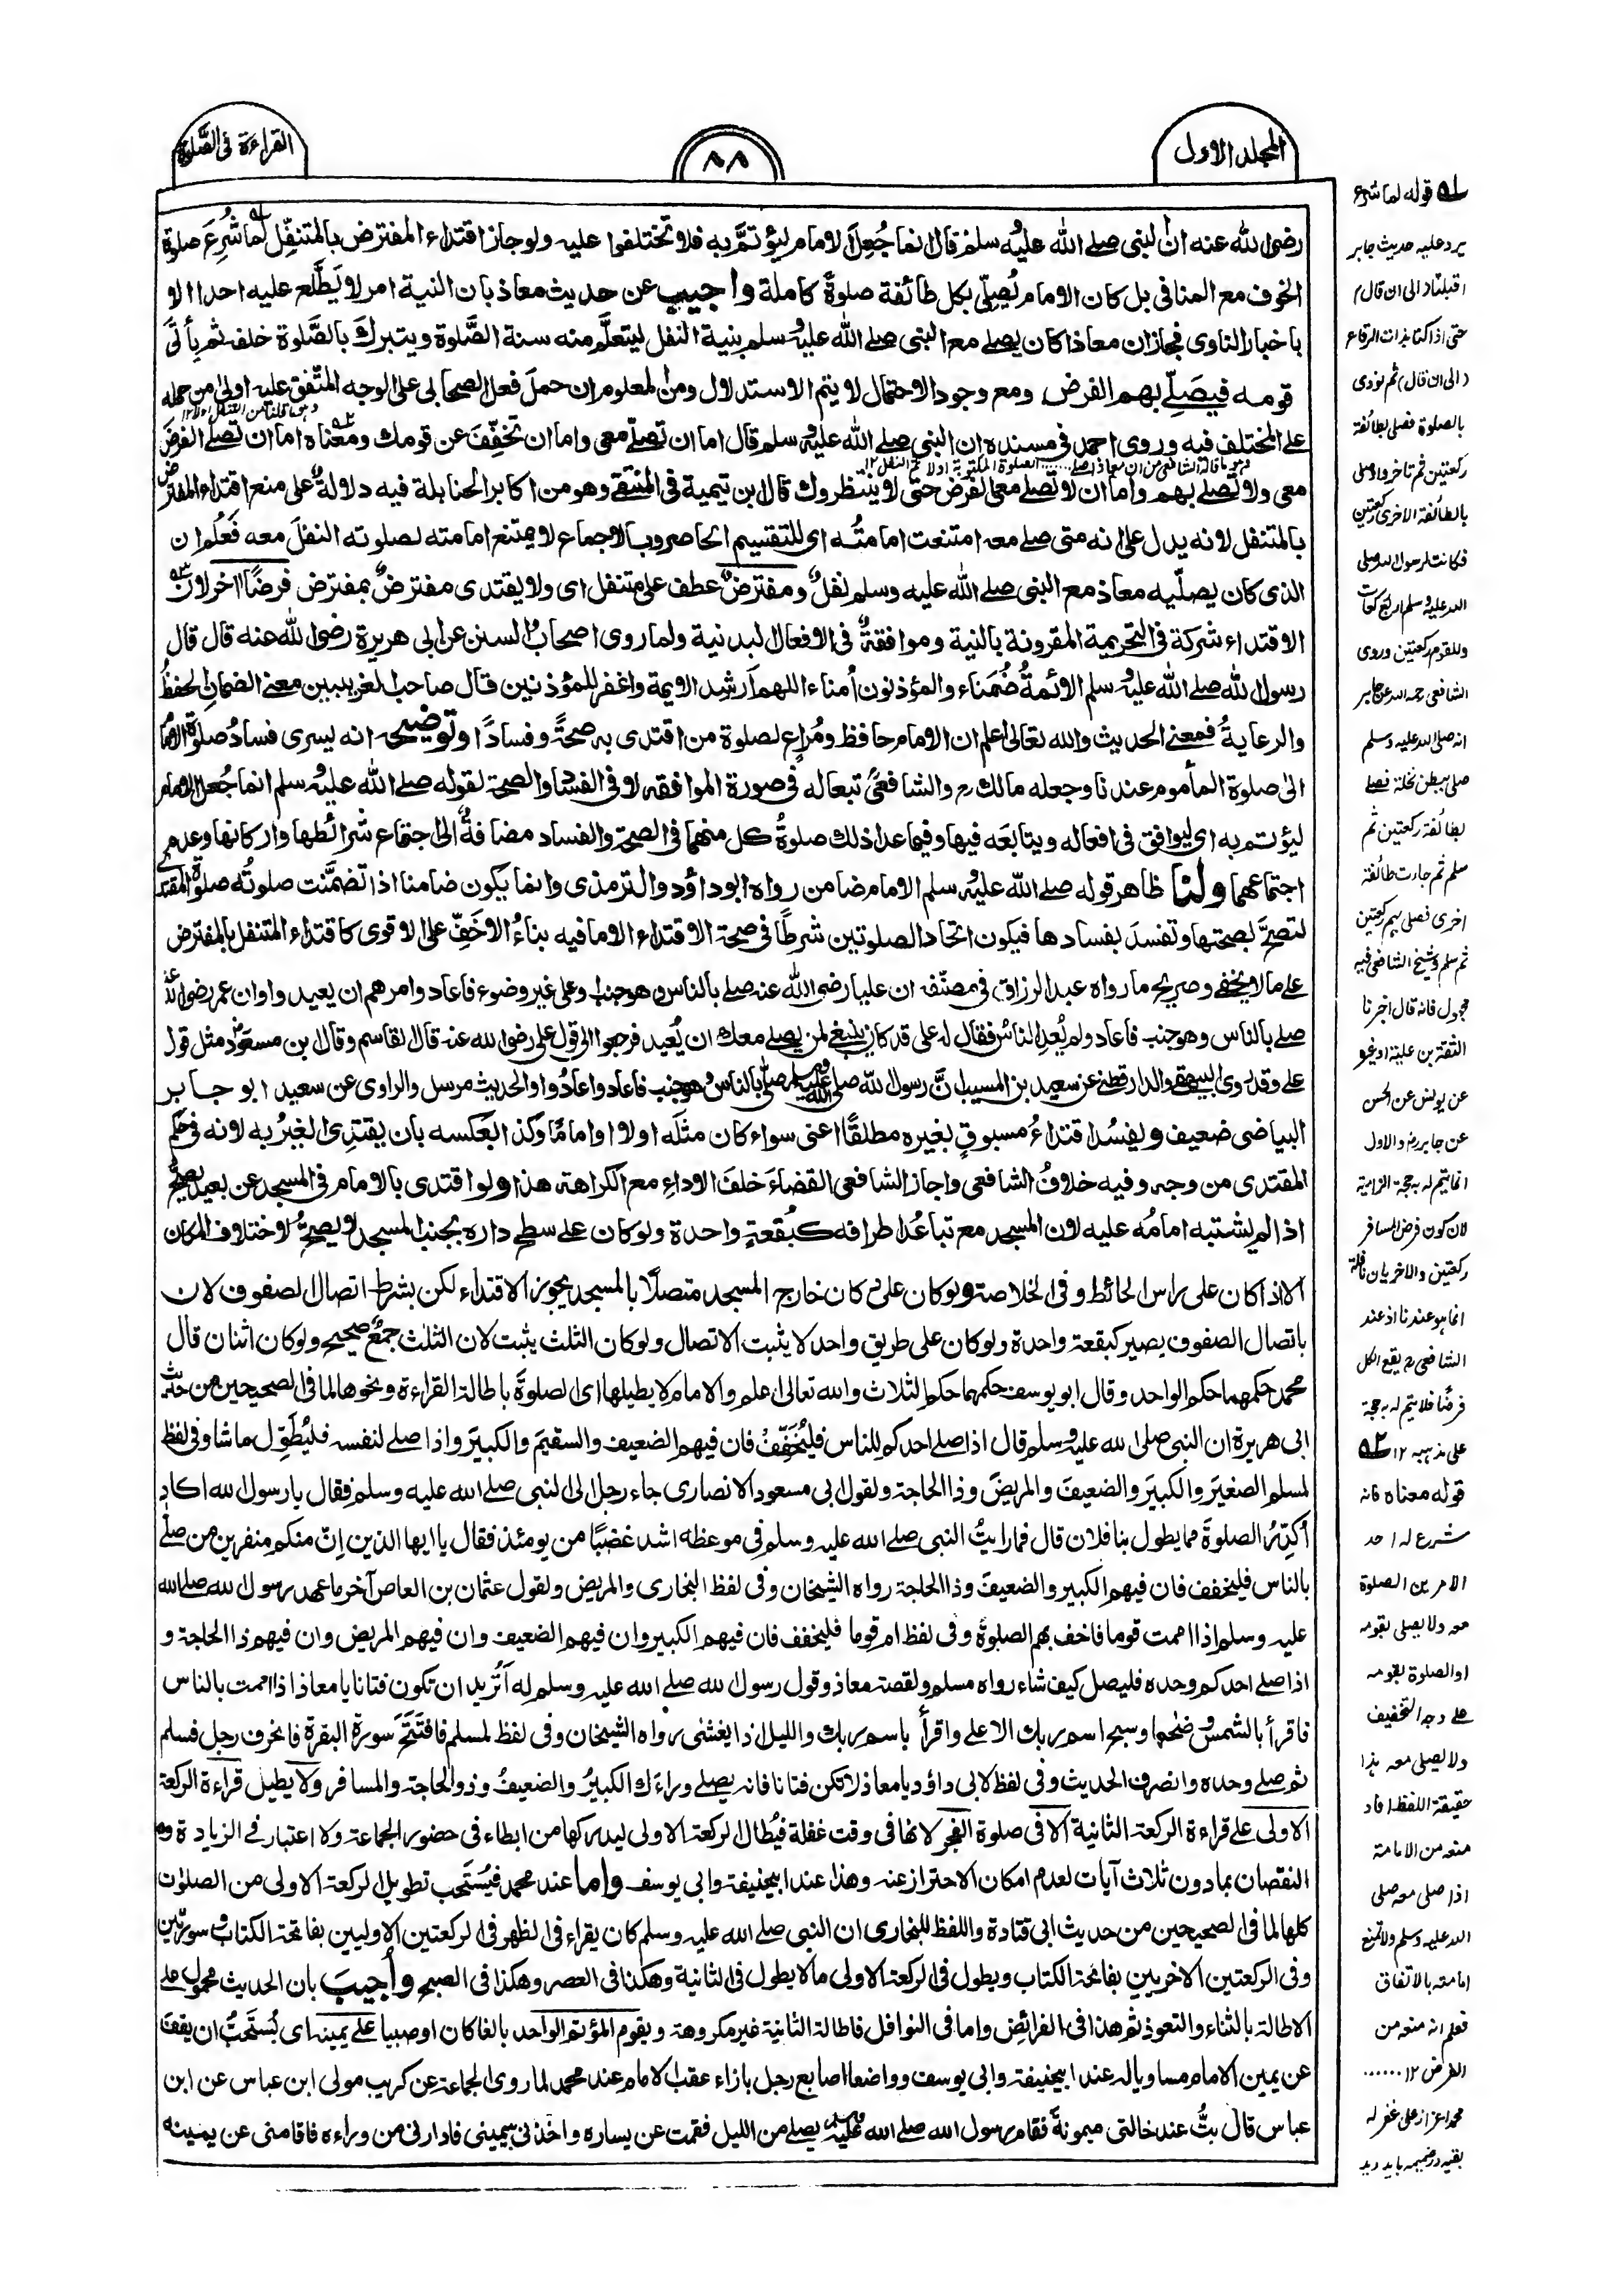 المجلد الاول
٨٨
القراءة فى الصلوة
رضى الله عنه ان النبى صلى الله عليه وسلم قال انما جُعِلَ الامام ليؤتمَّ به فلا تختلفوا عليه ولو جاز اقتداء المفترض بالمتنفِّل لما شُرِعَ صلوة
الخوف مع المنافى بل كان الامام يُصلّى بكل طائفة صلوةً كاملة واجيب عن حديث معاذ بان النية امر لا يَطَّلع عليه احد الا
باخبار الناوى فجاز ان معاذا كان يصلى مع النبى صلى الله عليه وسلم بنية النفل ليتعلَّم منه سنة الصَّلوة ويتبركَ بالصَّلوة خلفه ثم يأتى
قومه فيصَلِّى بهم الفرض ومع وجود الاحتمال لا يتم الاستدلال ومن المعلوم ان حملَ فعل الصحابى على الوجه المتّفق عليه اولى من حمله
على المختلف فيه وروى احمد فى مسنده ان النبى صلى الله عليه وسلم قال اما ان تصلّى معى واما ان تخفِّفَ عن قومك ومعناه اما ان تصلى الفرضَ
معى ولا تُصلى بهم واما ان لا تصلى معى الفرض حتى لا ينتظروك قال ابن تيمية فى المنتقى وهو من اكابر الحنابلة فيه دلالةٌ على منع اقتداء المفترض
بالمتنفل لانه يدل على انه متى صلى معه امتنعت امامتُه اى للتقسيم الحاصر وبالاجماع لا يمتنع امامته لصلوته النفلَ معه فَعُلم ان
الذى كان يصلّيه معاذ مع النبى صلى الله عليه وسلم نفلٌ ومفترضٌ عطف على متنفل اى ولا يقتدى مفترضٌ بمفترض فرضًا اخر لان
الاقتداء شركة فى التحريمة المقرونة بالنية وموافقةٌ فى الافعال البدنية ولما روى اصحاب السنن عن ابى هريرة رضى الله عنه قال قال
رسول الله صلى الله عليه وسلم الائمةُ ضُمَناء والمؤذنون اُمناء اللهم اَرشِد الايمة واغفر للمؤذنين قال صاحب الغريبين معنى الضمان الحفظُ
والرعايةُ فمعنى الحديث والله تعالى اعلم ان الامام حافظ ومُراعٍ لصلوة من اقتدى به صحةً وفسادًا وتوضيحه انه يسرى فسادُ صلوة الامام
الى صلوة المأموم عندنا وجعله مالك رح والشافعىُّ تبعا له فى صورة الموافقه لا فى الفساد والصحة لقوله صلى الله عليه وسلم انما جُعل الامام
ليؤتم به اى ليوافق فى افعاله ويتابعَه فيها وفيما عدا ذلك صلوةُ كل منهما فى الصحة والفساد مضافةٌ الى اجتماع شرائطها واركانها وعدم
اجتماعهما ولنا ظاهر قوله صلى الله عليه وسلم الامام ضامن رواه ابو داؤد والترمذى وانما يكون ضامنا اذا تضمَّنت صلوتُه صلوةَ المقتدى
لتصحَّ بصحتها وتفسدَ بفسادها فيكون اتحاد الصلوتين شرطًا فى صحة الاقتداء الا ما فيه بناءُ الاخَفِّ على الاقوى كاقتداء المتنفل بالمفترض
على ما لا يخفى وصريح ما رواه عبد الرزاق فى مصنّفه ان عليا رضى الله عنه صلى بالناس وهو جنب او على غير وضوء فاعاد وامرهم ان يعيدوا وان عمر رضى الله عنه
صلى بالناس وهو جنب فاعاد ولم يُعد الناسُ فقال له على قد كان ينبغى لمن يصلى معك ان يُعيد فرجعوا الى قول على رضى الله عنه قال القاسم وقال ابن مسعود رض مثل قول
على وقد روى البيهقى والدارقطنى عن سعيد بن المسيب انَّ رسول الله صلى الله عليه وسلم صلّى بالناس وهو جنب فاعاد واعادُوا والحديث مرسل والراوى عن سعيد ابو جابر
البياضى ضعيف ويفسُد اقتداءُ مسبوقٍ بغيره مطلقًا اعنى سواء كان مثلَه اولا او امامًا وكذا بعكسه بان يقتدىَ الغيرُ به لانه فى حكم
المقتدى من وجه وفيه خلافُ الشافعى واجاز الشافعى القضاءَ خلفَ الاداءِ مع الكراهة هذا ولو اقتدى بالامام فى المسجد عن بعيد يصحُّ
اذا لم يشتبه امامُه عليه لان المسجد مع تباعُد اطرافه كبُقعةٍ واحدة ولو كان على سطح داره بجنب المسجد لا يصحُّ لاختلاف المكان
الا اذا كان على راس الحائط وفى الخلاصة ولو كان على دكان خارج المسجد متصلًا بالمسجد يجوز الاقتداء لكن بشرط اتصال الصفوف لان
باتصال الصفوف يصير كبقعة واحدة ولو كان على طريق واحد لا يثبت الاتصال ولو كان الثلث يثبت لان الثلث جمعٌ صحيح ولو كان اثنان قال
محمد حكمهما حكم الواحد وقال ابو يوسف حكمهما حكم الثلاث والله تعالى اعلم والامام لا يطيلها اى الصلوةَ باطالة القراءة ونحوها لما فى الصحيحين من حديث
ابى هريرة ان النبى صلى الله عليه وسلم قال اذا صلى احدكم للناس فليُخفِّفْ فان فيهم الضعيف والسقيمَ والكبيرَ واذا صلى لنفسه فليُطَوِّل ما شا وفى لفظ
لمسلم الصغيرَ والكبيرَ والضعيفَ والمريضَ وذا الحاجة ولقول ابى مسعود الانصارى جاء رجل الى النبى صلى الله عليه وسلم فقال يا رسول الله اكاد
اُدرك الصلوةَ مما يطول بنا فلان قال فما رايتُ النبى صلى الله عليه وسلم فى موعظه اشد غضبًا من يومئذ فقال يا ايها الذين اِنّ منكم منفرين من صلّى
بالناس فليخفف فان فيهم الكبير والضعيفَ وذا الحاجة رواه الشيخان وفى لفظ البخارى والمريض ولقول عثمان بن العاص آخر ما عهد رسول الله صلى الله
عليه وسلم اذا اممت قوما فاخف بهم الصلوة وفى لفظ ام قوما فليخفف فان فيهم الكبير وان فيهم الضعيف وان فيهم المريض وان فيهم ذا الحاجة و
اذا صلى احدكم وحده فليصل كيف شاء رواه مسلم ولقصة معاذ وقول رسول الله صلى الله عليه وسلم له اَتُريد ان تكون فتانا يا معاذ اذا اممت بالناس
فاقرأ بالشمس وضحها وسبح اسم ربك الاعلى واقرأ باسم ربك والليل اذا يغشى رواه الشيخان وفى لفظ لمسلم فافتَتَحَ سورة البقرة فانحرف رجل فسلم
ثم صلى وحده وانصرف الحديث وفى لفظ لابى داؤد يا معاذ لا تكن فتانا فانه يصلى وراءك الكبيرُ والضعيفُ وذو الحاجة والمسافر ولا يطيل قراءة الركعة
الاولى على قراءة الركعة الثانية الا فى صلوة الفجر لانها فى وقت غفلة فيُطال الركعة الاولى ليدركها من ابطاء فى حضور الجماعة ولا اعتبار فى الزيادة و
النقصان بمادون ثلاث آيات لعدم امكان الاحتراز عنه وهذا عند ابيحنيفة وابى يوسف واما عند محمد فيُستَحب تطويل الركعة الاولى من الصلوات
كلها لما فى الصحيحين من حديث ابى قتادة واللفظ للبخارى ان النبى صلى الله عليه وسلم كان يقراء فى الظهر فى الركعتين الاوليين بفاتحة الكتاب وسورتين
وفى الركعتين الاخريين بفاتحة الكتاب ويطول فى الركعة الاولى ما لا يطول فى الثانية وهكذا فى العصر وهكذا فى الصبح واُجيبَ بان الحديث محمول على
الاطالة بالثناء والتعوذ ثم هذا فى الفرائض واما فى النوافل فاطالة الثانية غير مكروهة ويقوم المؤتم الواحد بالغا كان او صبيا على يمينه اى يُستَحبُّ ان يقفَ
عن يمين الامام مساويا له عند ابيحنيفة وابى يوسف وواضعا اصابع رجل بازاء عقب الامام عند محمد لما روى الجماعة عن كريب مولى ابن عباس عن ابن
عباس قال بتُّ عند خالتى ميمونةَ فقام رسول الله صلى الله عليه وسلم يصلى من الليل فقمت عن يساره واخذنى بيمينى فادارنى من وراءه فاقامنى عن يمينه
وهو ما قلنا من التنفل اولا ١٢
وهو ما قاله الشافعى من ان معاذا صلى ...... الصلوة المكتوبة اولا ثم النفل ١٢
له قوله لما شرع
يرد عليه حديث جابر
اقبلنا (الى ان قال)
حتى اذا كنا بذات الرقاع
(الى ان قال) ثم نودى
بالصلوة فصلى بطائفة
ركعتين ثم تاخروا وصلى
بالطائفة الاخرى ركعتين
فكانت لرسول الله صلى
الله عليه وسلم اربع ركعات
وللقوم ركعتين وروى
الشافعى رحمه الله عن جابر
انه صلى الله عليه وسلم
صلى ببطن نخلة فصلى
بطائفة ركعتين ثم
سلم ثم جاءت طائفة
اخرى فصلى بهم ركعتين
ثم سلم وشيخ الشافعى فيه
مجهول فانه قال اخبرنا
الثقة بن علية او غيره
عن يونس عن الحسن
عن جابر رض والاول
انما يتم له به حجة الزامية
لان كون فرض المسافر
ركعتين والاخريان نافلة
انما هو عندنا اذ عند
الشافعى رح يقع الكل
فرضًا فلا يتم له به حجة
على مذهبه ١٢ ٥٢
قوله معناه فانه
شرع له احد
الامرين الصلوة
معه ولا يصلى بقومه
او الصلوة بقومه
على وجه التخفيف
ولا يصلى معه هذا
حقيقة اللفظ افاد
منعه من الامامة
اذا صلى معه صلى
الله عليه وسلم ولا تمنع
امامته بالاتفاق
فعلم انه منعه من
الفرض ١٢ ......
محمد اعزاز على غفر له
بقيه در ضميمه بايد ديد